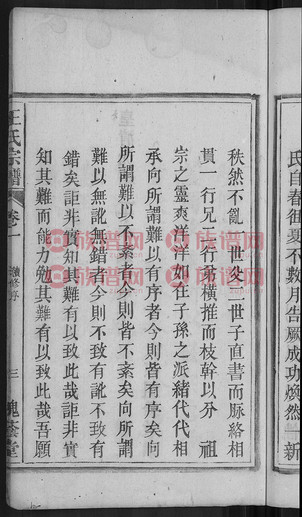 氏自春徂夏不數月告厥成功煥然新
秩然不亂一世炎二世子直書而脈絡相
貫一行兄二行弟橫推而枝幹以分祖
宗之靈爽洋洋如在子孫之派緒代代相
承向所謂難以有序者今則皆有序矣向
所謂難以不紊者今則皆不紊矣向所謂
難以無訛無錯者今則不致有訛不致有
錯矣詎非實知其難有以致此哉詎非實
知其難而能力勉其難有以致此哉吾願
王氏宗譜
卷一
續修序
三
槐蔭堂
族譜网